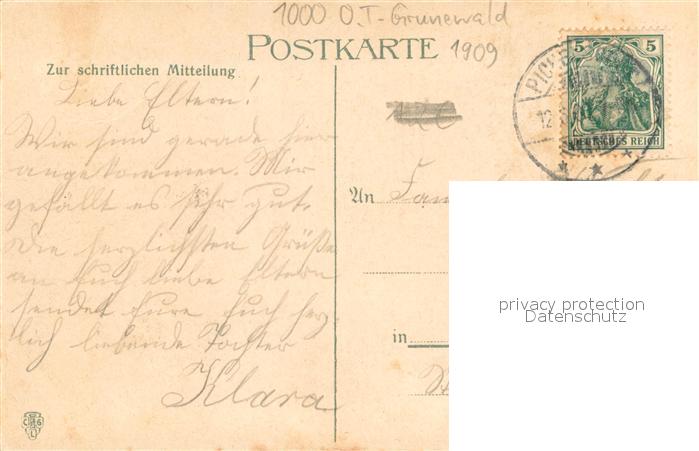 1000 O.T-Grunewald
POSTKARTE 1909
Zur schriftlichen Mitteilung
Liebe Eltern!
Wir sind gerade hier
angekommen. Mir
gefällt es sehr gut.
Die herzlichsten Grüße
an Euch liebe Eltern
sendet Eure Euch herz-
lich liebende Tochter
Klara
5 5
DEUTSCHES REICH
PICH
12
An Fam
in
privacy protection
Datenschutz